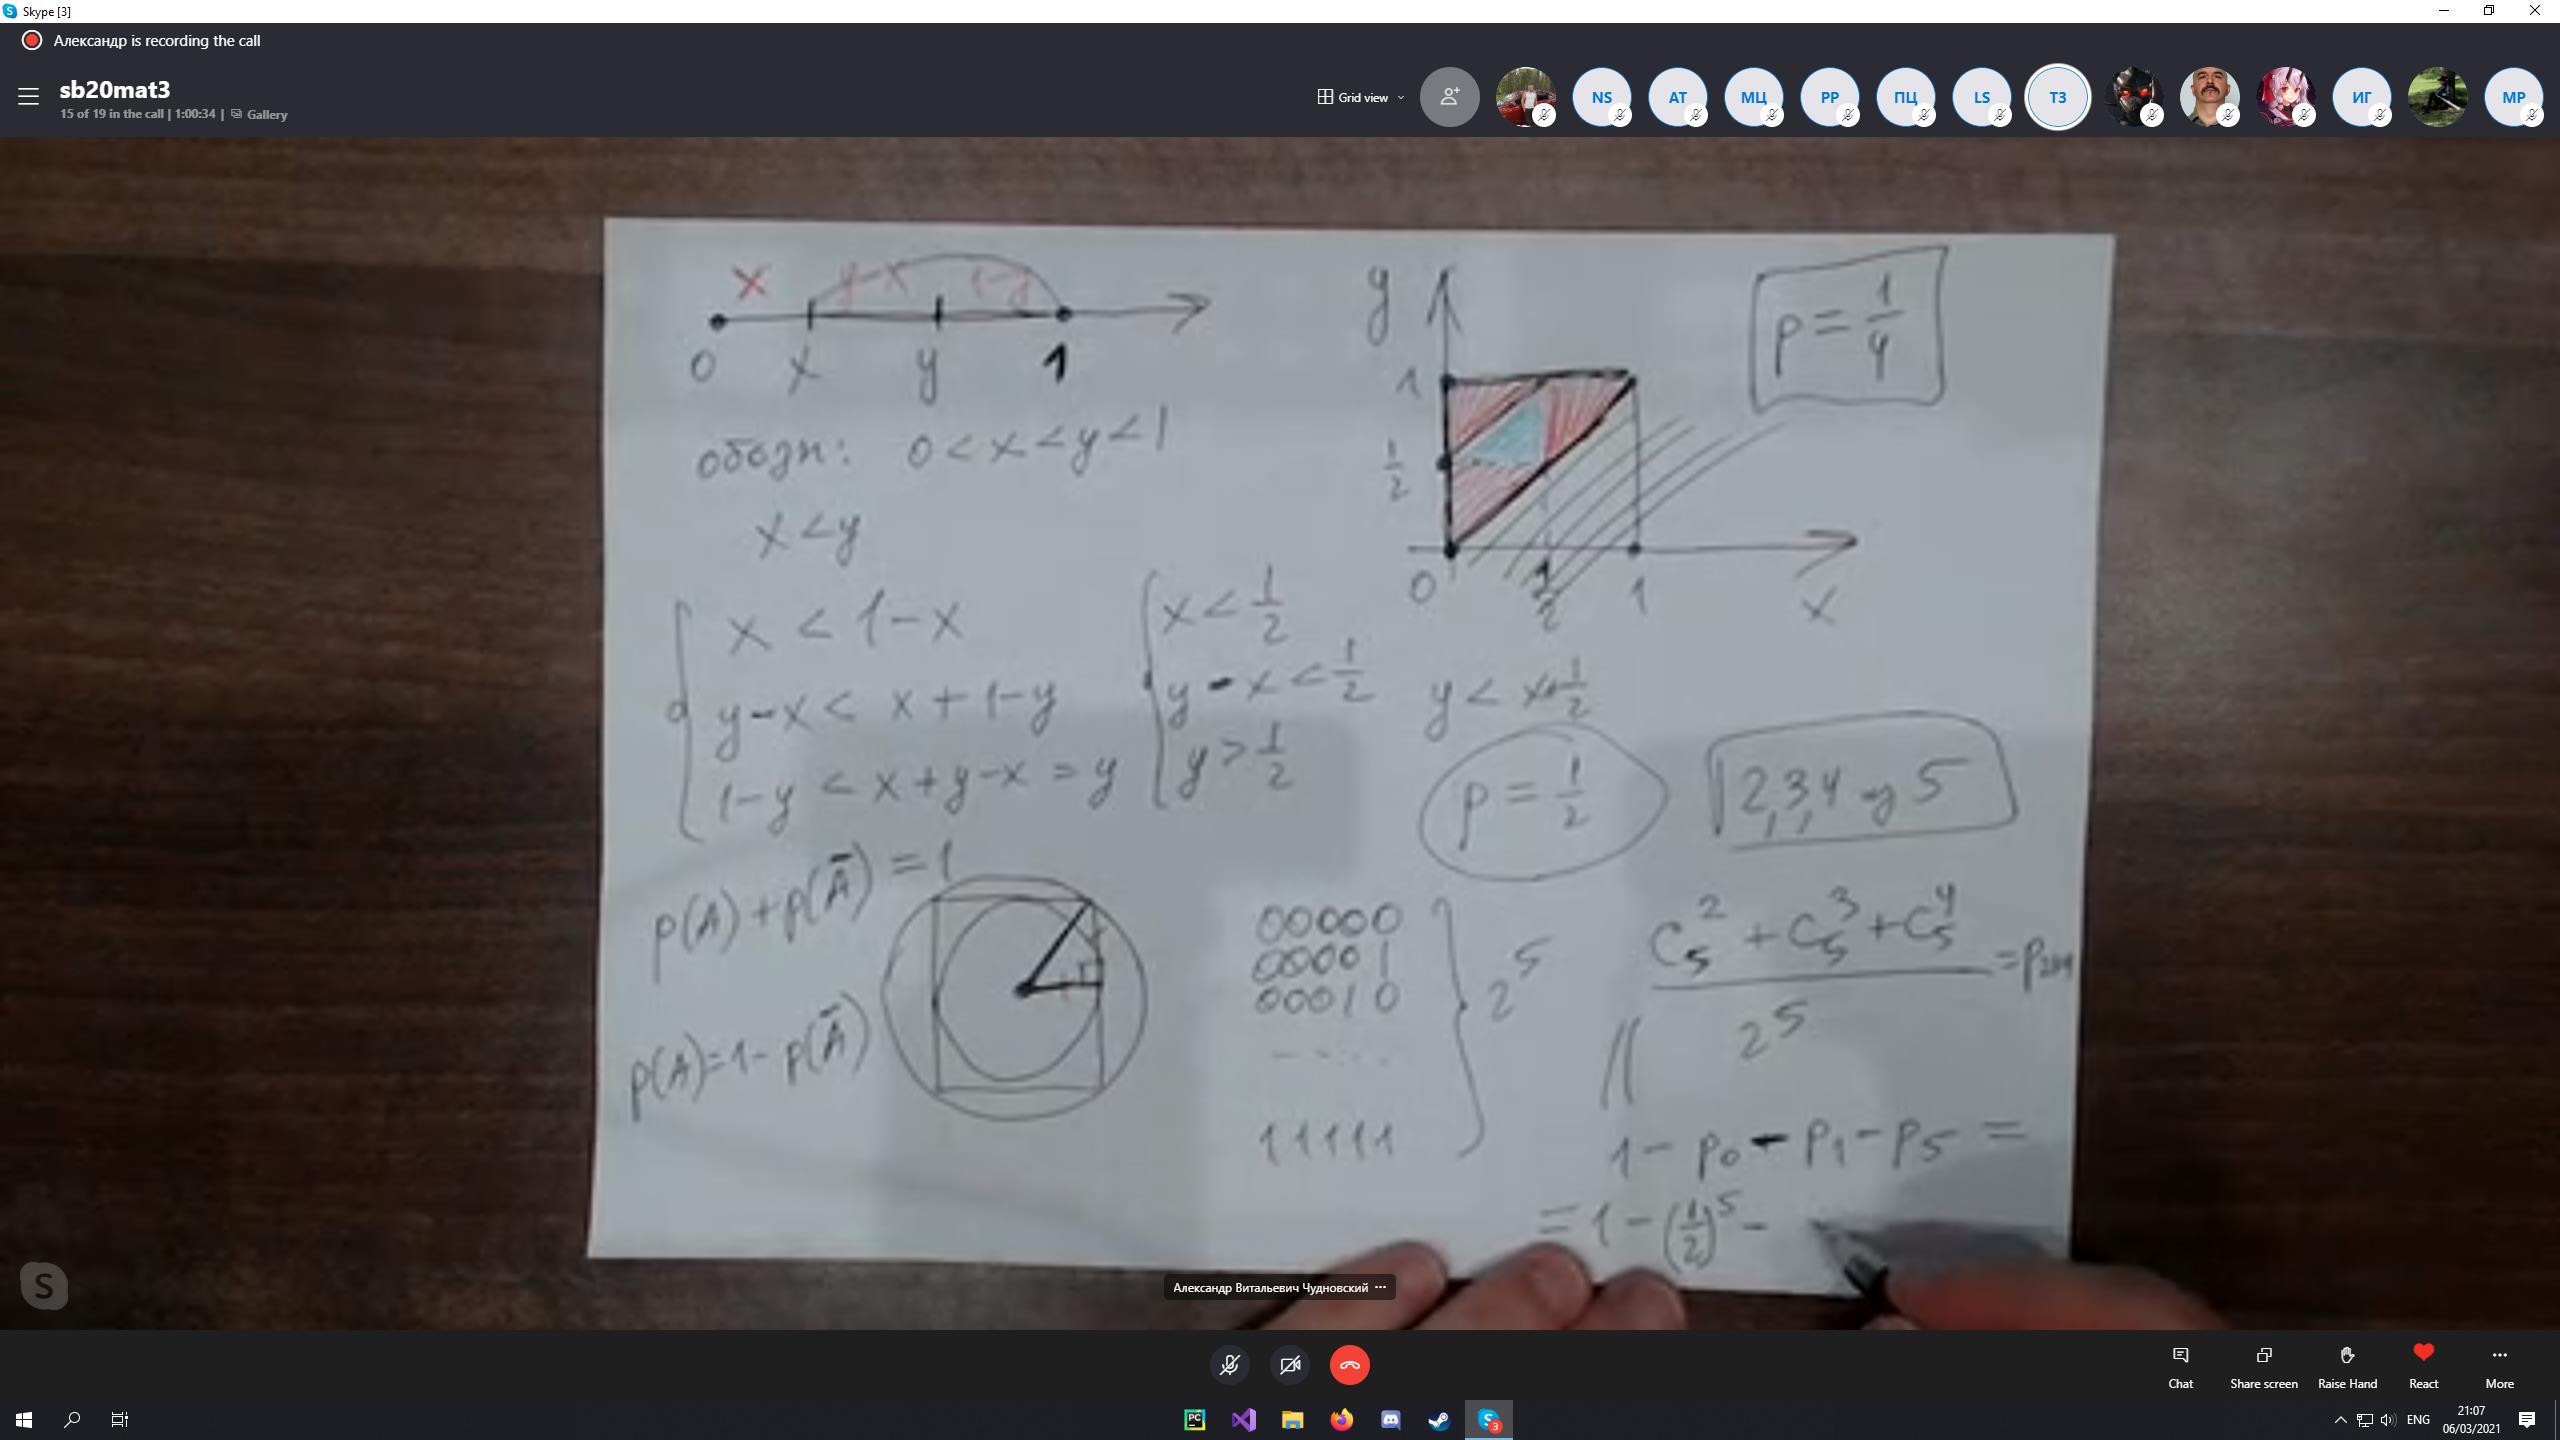 Skype [3]
Александр is recording the call
sb20mat3
15 of 19 in the call | 1:00:34 | Gallery
Grid view
NS
АТ
МЦ
РР
ПЦ
LS
ТЗ
ИГ
МР
x y-x 1-y
0 x y 1
обозн: 0 < x < y < 1
x < y
x < 1-x
y-x < x+1-y
1-y < x+y-x = y
x < 1/2
y - x < 1/2
y > 1/2
y < x+1/2
y
1
1/2
0 1/2 1 x
p = 1/4
p = 1/2
2,3,4 из 5
p(A)+p(Ā) = 1
p(A)=1-p(Ā)
00000
00001
00010
- - . . .
11111
2^5
(C_5^2 + C_5^3 + C_5^4) / 2^5 = p
1 - p_0 - p_1 - p_5 =
= 1 - (1/2)^5 -
S
Александр Витальевич Чудновский ...
Chat
Share screen
Raise Hand
React
More
PC
S 3
ENG
21:07
06/03/2021